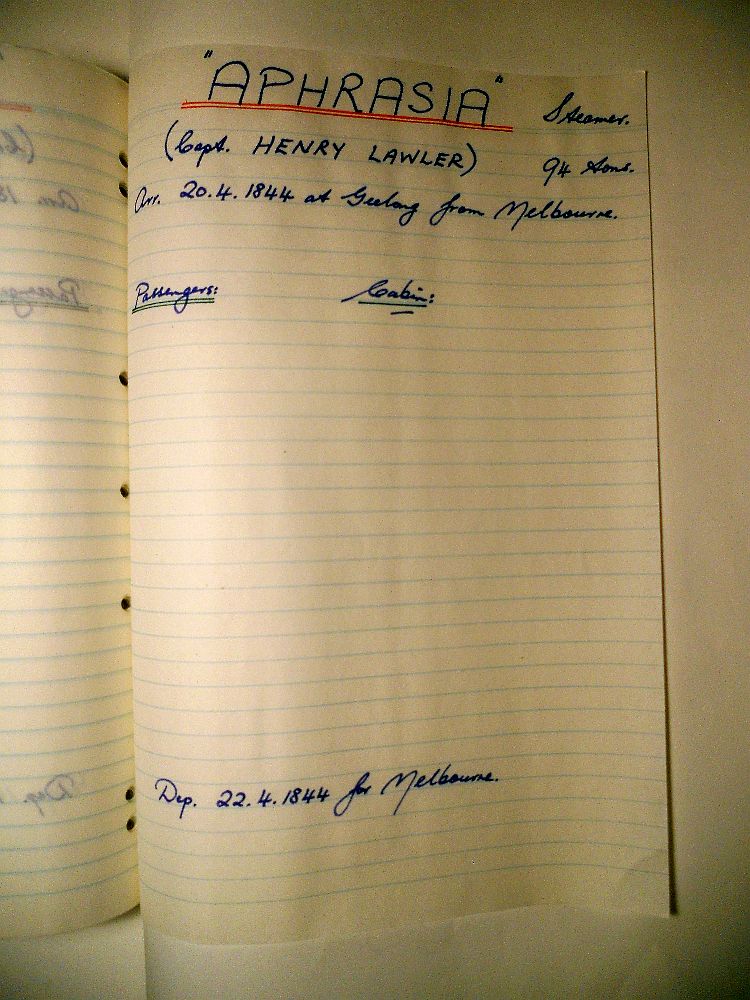 "APHRASIA" Steamer.
(Capt. HENRY LAWLER) 94 tons.
Arr. 20.4.1844 at Geelong from Melbourne.
Passengers: Cabin:
Dep. 22.4.1844 for Melbourne.